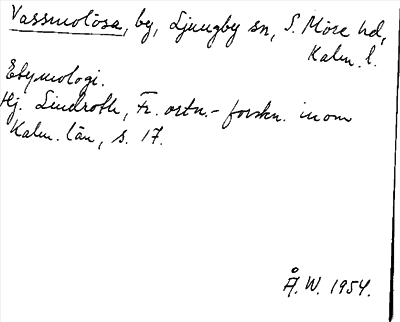 Vassmolösa, by, Ljungby sn, S. Möre hd,
Kalm. l.
Etymologi.
Hj. Lindroth, Fr. ortn.-forskn. inom
Kalm. län, s. 17.
Å. W. 1954.